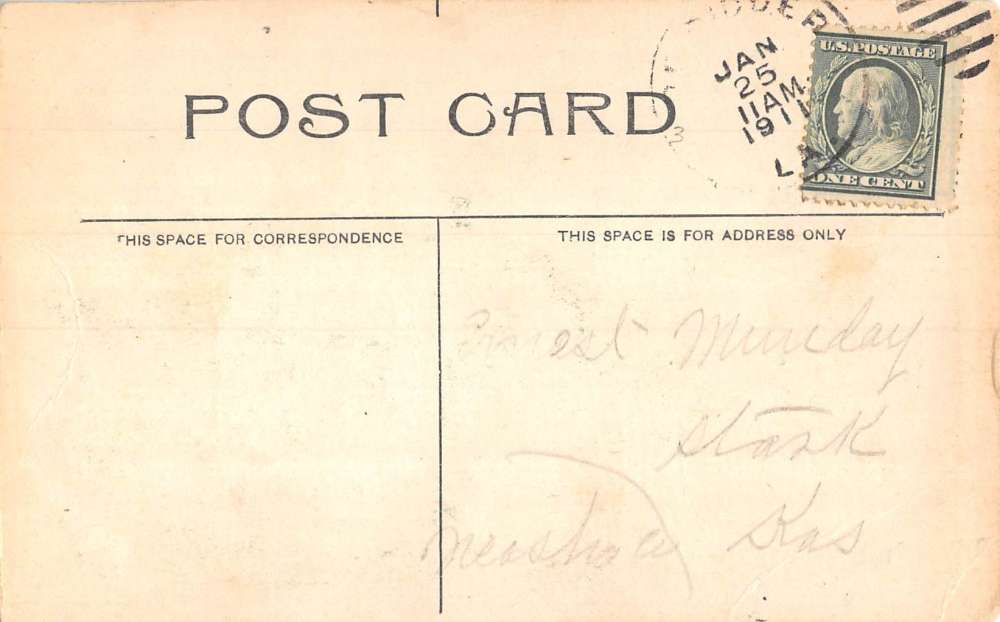 POST CARD
JAN
25
11 AM
1911
LA
U.S. POSTAGE
ONE CENT
3
THIS SPACE FOR CORRESPONDENCE
THIS SPACE IS FOR ADDRESS ONLY
Ernest Munday
Stark
Neosho Co Kas